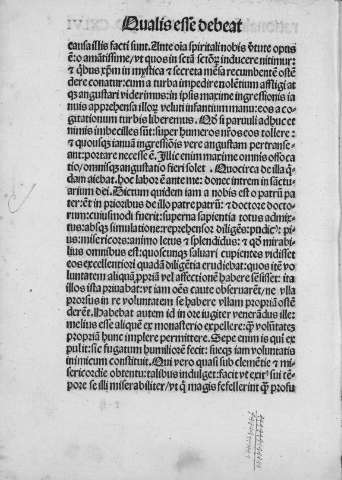 Qualis esse debeat
causa illis facti sunt. Ante oīa spiritali nobis v̄tute optus
ē: o amātissime, vt quos in sctā sctōꝝ inducere nitimur:
⁊ q̄bus xp̄m in mystica ⁊ secreta mēsa recumbentē ostē
dere conatur: cum a turba impedire nolētium affligi at
q̄ꝫ angustari viderimus: in ipsis maxime ingressionis ia
nuis apprehensa illoꝝ veluti infantium manu: eos a co
gitationum turbis liberemus. Qd̄ si paruuli adhuc et
nimis imbecilles sūt: super humeros nr̄os eos tollere:
⁊ quousqꝫ ianuā ingressiōis vere angustam pertranse
ant: portare necesse ē. Illic enim maxime omnis offoca
tio/omnisqꝫ angustatio fieri solet. Quocirca de illa q̄
dam aiebat. hoc labor ē ante me: donec intrem in sāctu
arium dei. Dictum quidem iam a nobis est o patrū pa
ter: et in prioribus de illo patre patrū: ⁊ doctore docto
rum: cuiusmodi fuerit: superna sapientia totus admix
tus: absqꝫ simulatione: reprehensor diligēs: pudic⁹: pi
us: misericors: animo letus ⁊ splendidus: ⁊ qd̄ mirabi
lius omnibus est: quoscunqꝫ saluari cupientes vidisset
eos excellentiori quadā diligētia erudiebat: quos itē vo
luntatem aliquā p̱priā vel affectionē habere sēsisset: ita
illos ista priuabat: vt iam oēs caute obseruarēt/ne vlla
prorsus in re voluntatem se habere vllam propriā ostē
derēt. Habebat autem id in ore iugiter venerādus ille:
melius esse aliquē ex monasterio expellere: q̄ꝫ volūtates
propriā hunc implere permittere. Sepe enim is qui ex
pulit: sic fugatum humiliorē fecit: sueqꝫ iam voluntatis
inimicum constituit. Qui vero quasi sub clemētie ⁊ mi
sericordie obtentu: talibus indulget: facit vt exit⁹ sui tē⸗
pore se illi miserabiliter/vt q̄ magis fefellerint q̄ꝫ profu